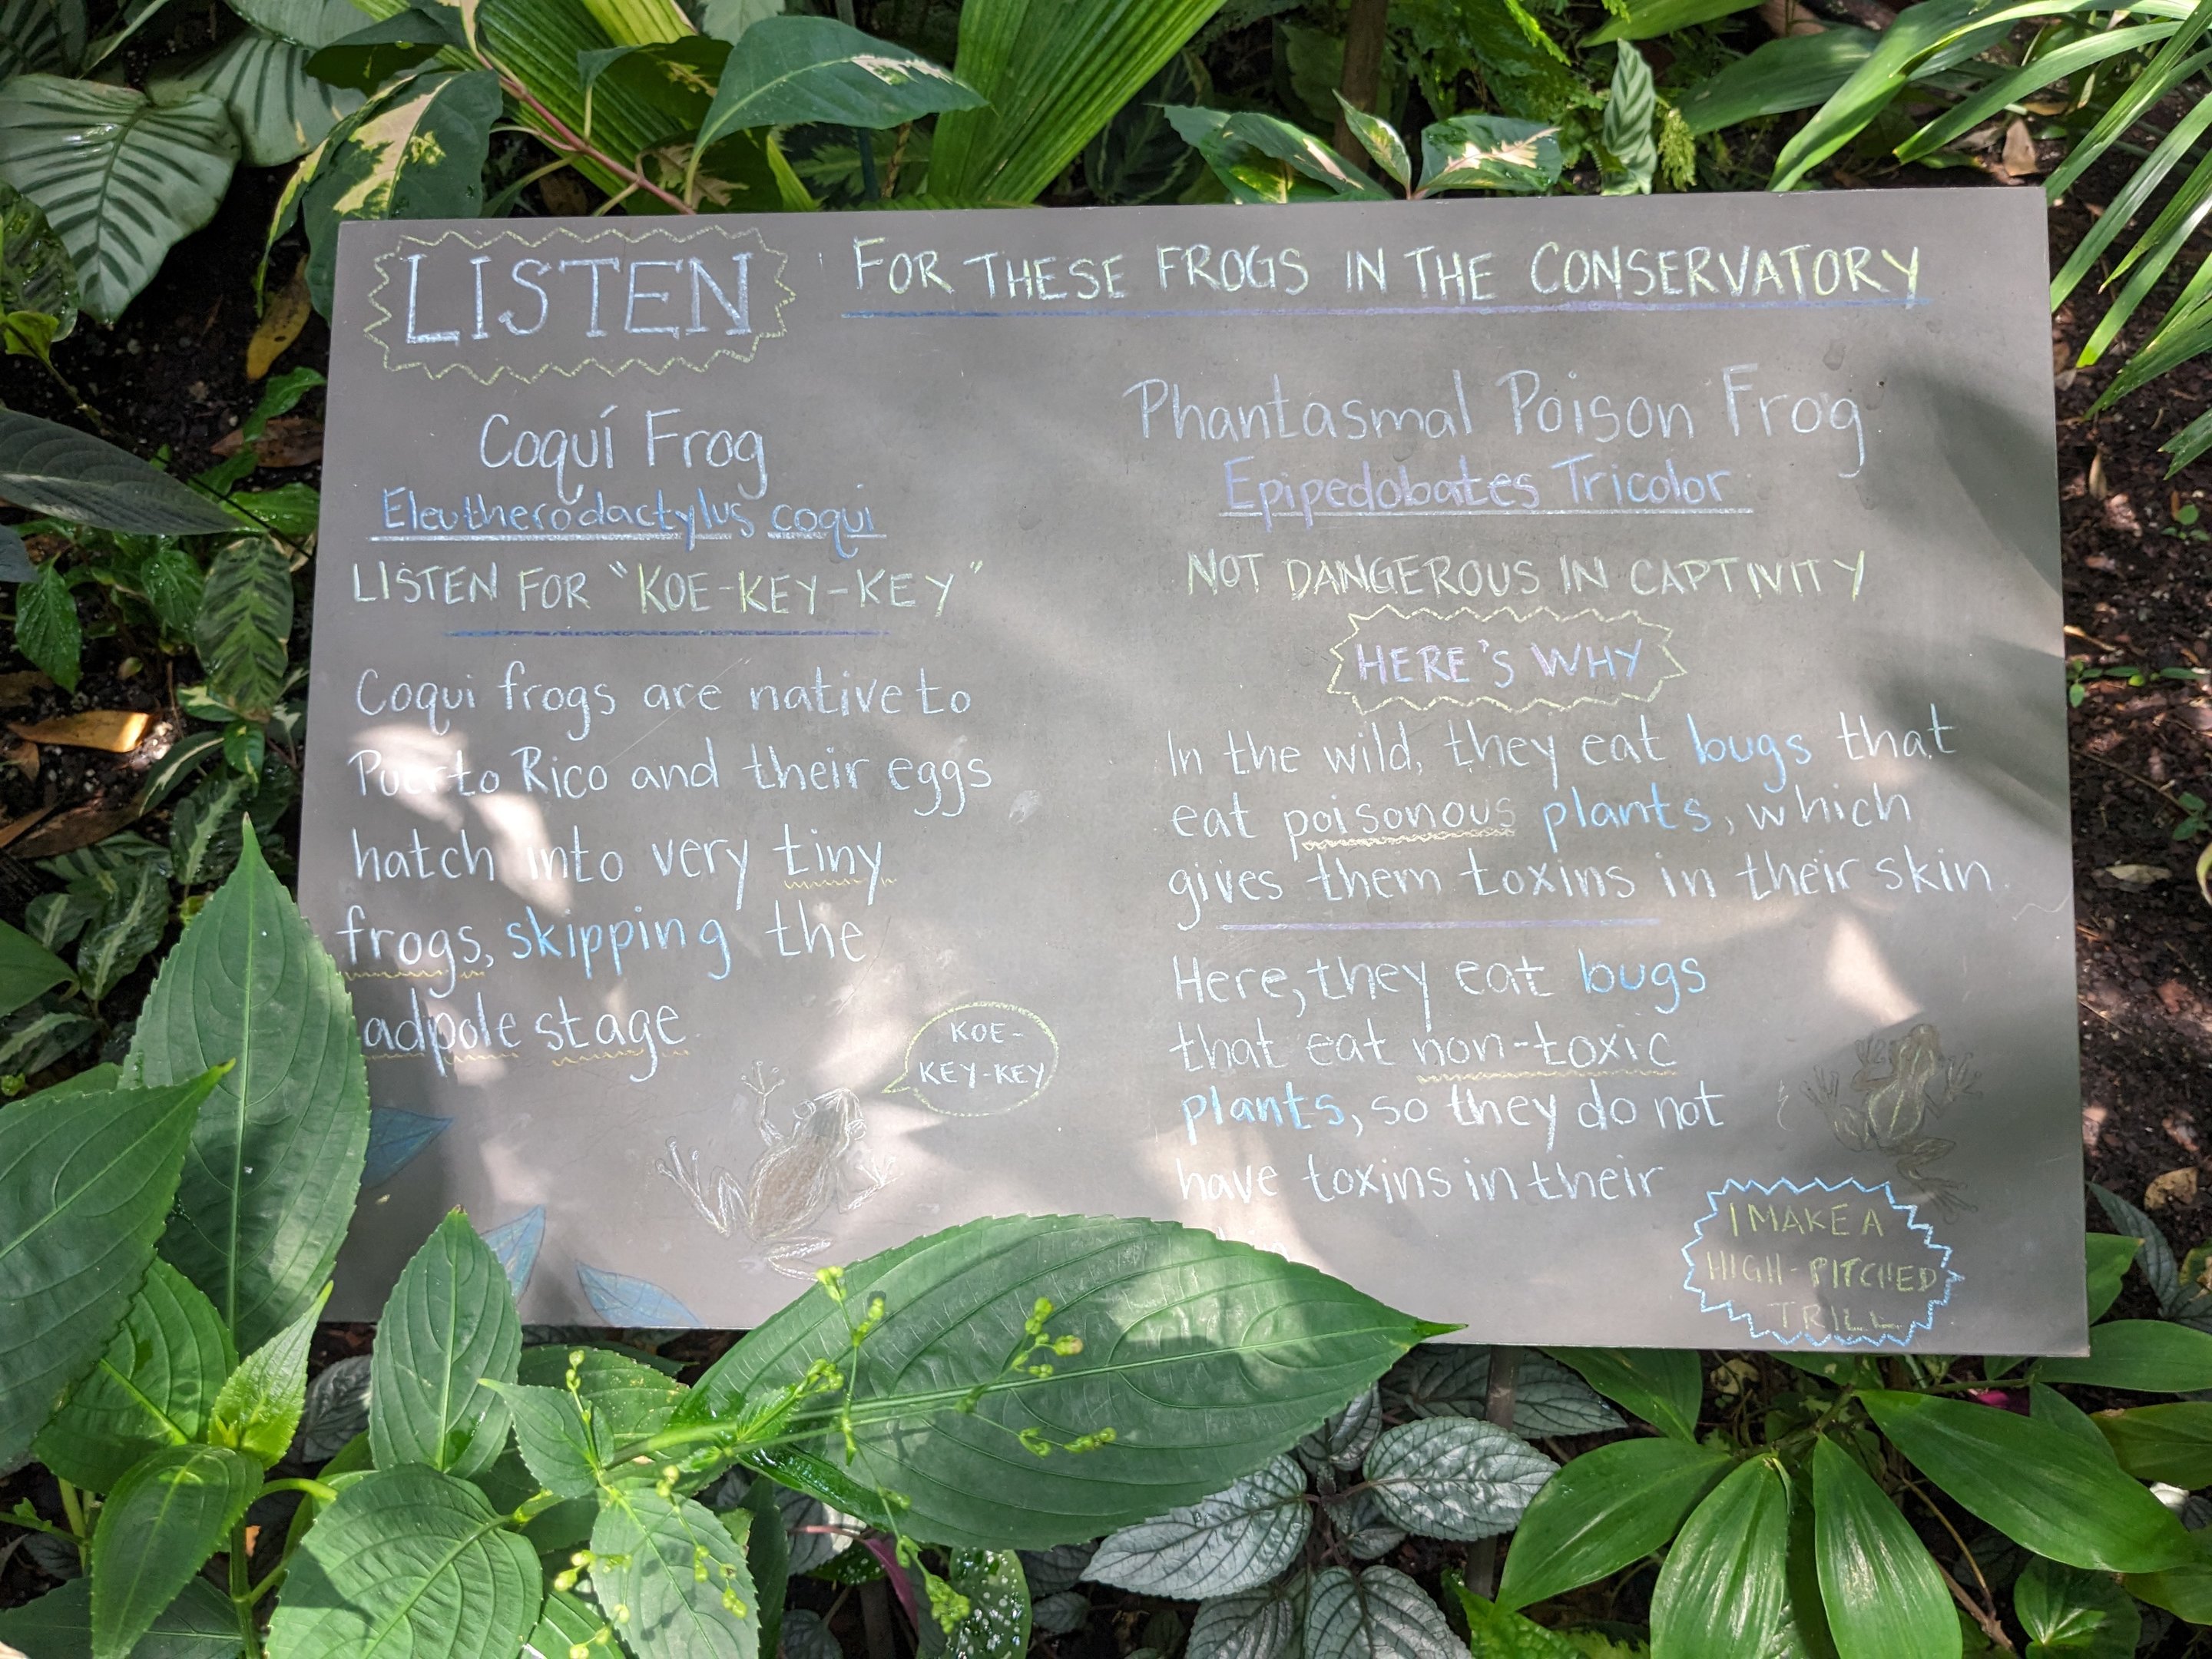 LISTEN FOR THESE FROGS IN THE CONSERVATORY
Coquí Frog
Eleutherodactylus coqui
LISTEN FOR "KOE-KEY-KEY"
Coqui frogs are native to
Puerto Rico and their eggs
hatch into very tiny
frogs, skipping the
adpole stage
KOE-
KEY-KEY
Phantasmal Poison Frog
Epipedobates Tricolor
NOT DANGEROUS IN CAPTIVITY
HERE'S WHY
In the wild, they eat bugs that
eat poisonous plants, which
gives them toxins in their skin
Here, they eat bugs
that eat non-toxic
plants, so they do not
have toxins in their
I MAKE A
HIGH-PITCHED
TRILL